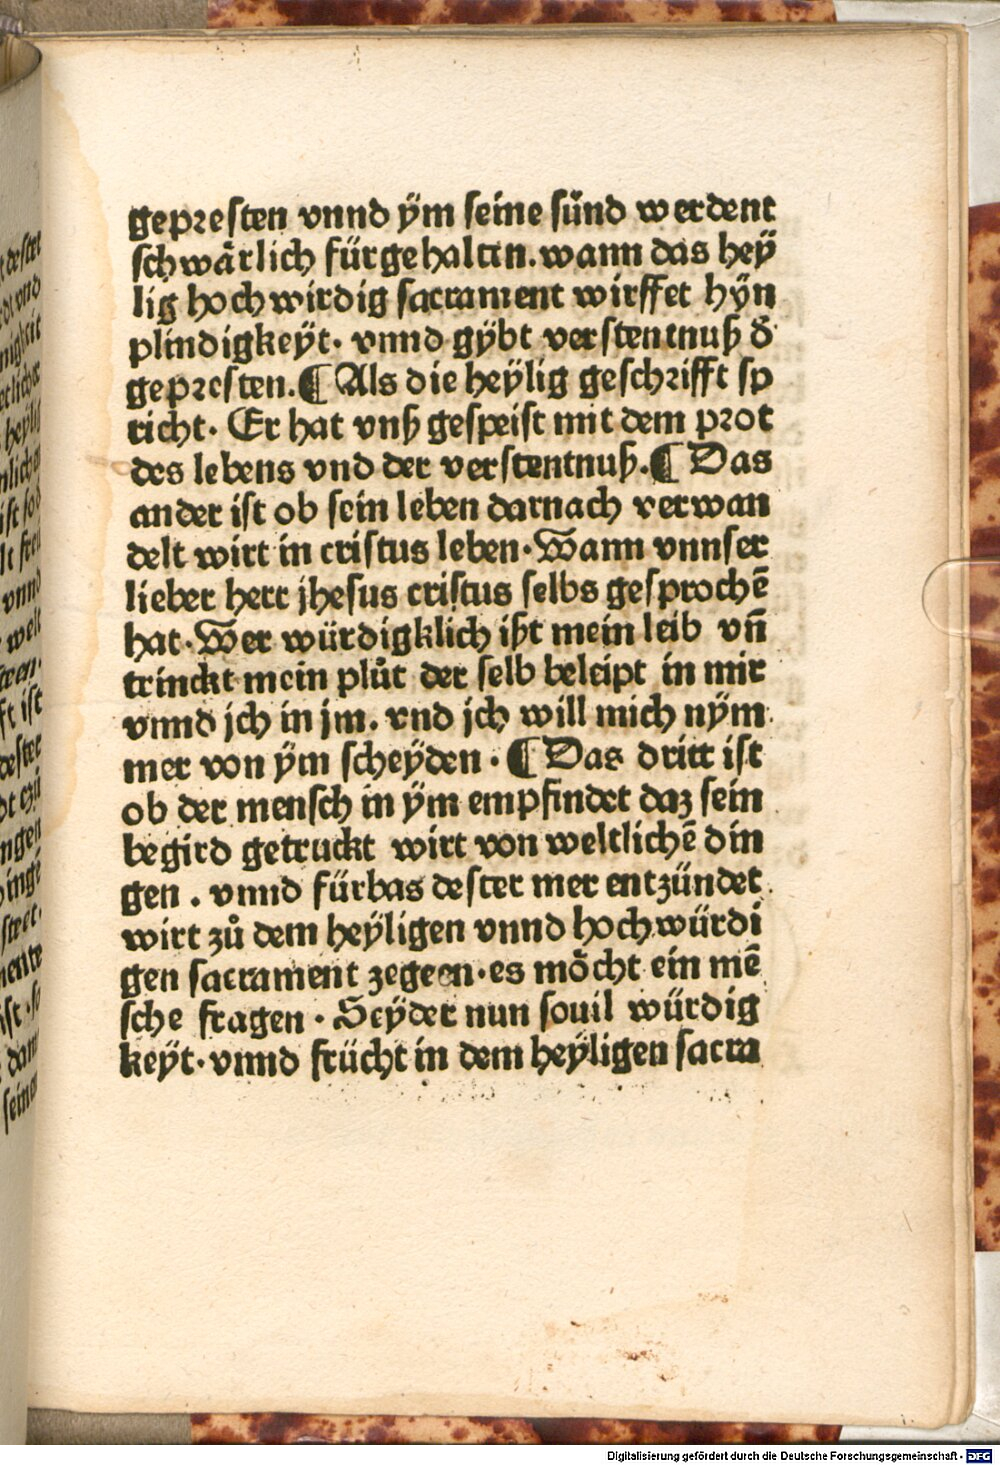 gepresten vnnd ÿm seine sünd werdent
schwärlich fürgehalten. wann das heÿ
lig hochwirdig sacrament wirffet hÿn
plindigkeÿt. vnnd gÿbt verstentnuß d̕
gepresten. ¶ Als die heÿlig geschrifft sp
richt. Er hat vnß gespeist mit dem prot
des lebens vnd der verstentnuß. ¶ Das
ander ist ob sein leben darnach verwan
delt wirt in cristus leben. Wann vnnser
lieber herr jhesus cristus selbs gesprochē
hat. Wer würdigklich ißt mein leib vn̄
trinckt mein plůt der selb beleipt in mir
vnnd jch in jm. vnd jch will mich nÿm
mer von ÿm scheÿden. ¶ Das dritt ist
ob der mensch in ÿm empfindet daz sein
begird getruckt wirt von weltlichē din
gen. vnnd fürbas dester mer entzündet
wirt zů dem heÿligen vnnd hochwürdi
gen sacrament zegeen. es möcht ein mē
sche fragen. Seÿder nun souil würdig
keÿt. vnnd frücht in dem heÿligen sacra
Digitalisierung gefördert durch die Deutsche Forschungsgemeinschaft - DFG